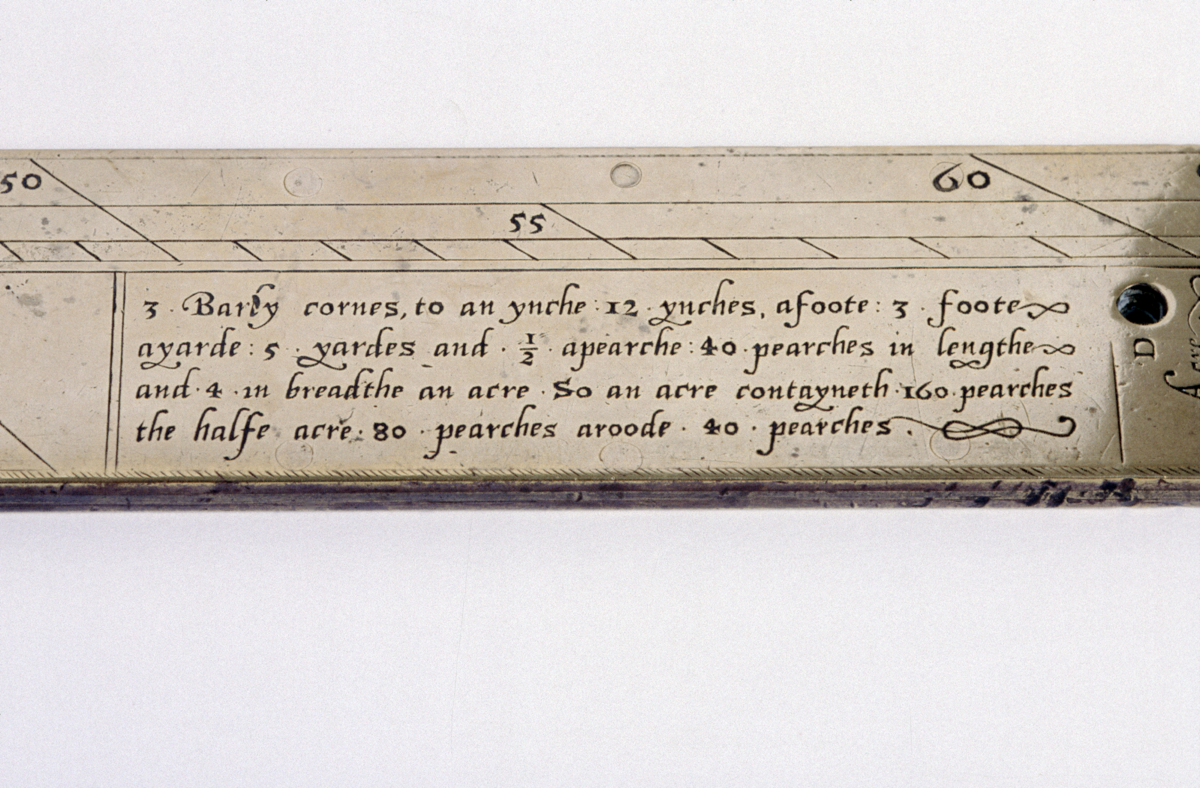 50 55 60
3 · Barly cornes, to an ynche : 12 · ynches, afoote : 3 · foote
ayarde : 5 · yardes and · ½ · apearche : 40 · pearches in lengthe
and · 4 · in breadthe an acre · So an acre contayneth · 160 · pearches
the halfe acre : 80 · pearches aroode · 40 · pearches ·
D